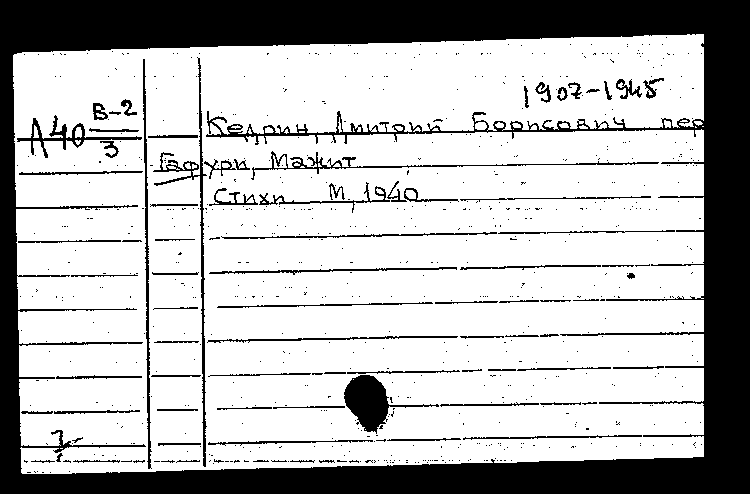 1907-1945
В-2
Л40
3
Кедрин, Дмитрий Борисович пер
Гафури, Мажит
Стихи М, 1940